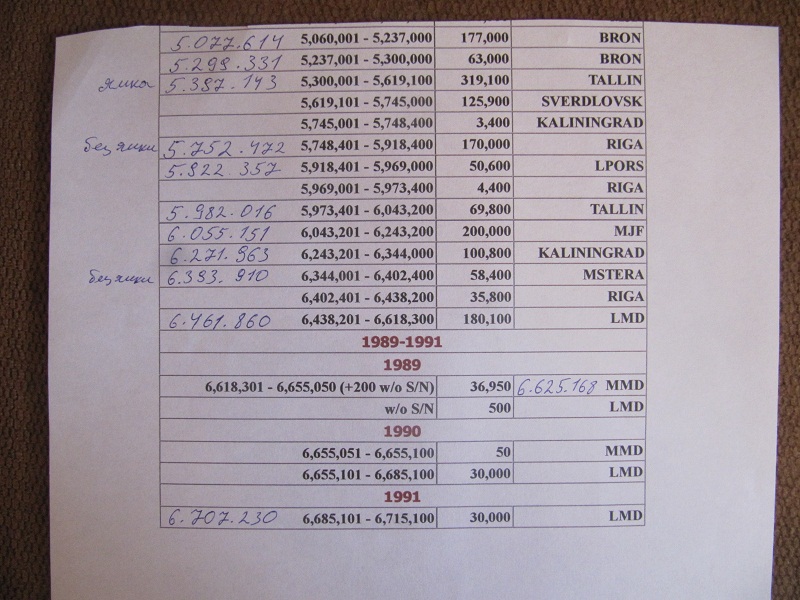 5.077.614 5,060,001 - 5,237,000 177,000 BRON
5.299.331 5,237,001 - 5,300,000 63,000 BRON
ямка 5.387.143 5,300,001 - 5,619,100 319,100 TALLIN
5,619,101 - 5,745,000 125,900 SVERDLOVSK
5,745,001 - 5,748,400 3,400 KALININGRAD
без ямки 5.752.472 5,748,401 - 5,918,400 170,000 RIGA
5.922.357 5,918,401 - 5,969,000 50,600 LPORS
5,969,001 - 5,973,400 4,400 RIGA
5.982.016 5,973,401 - 6,043,200 69,800 TALLIN
6.055.151 6,043,201 - 6,243,200 200,000 MJF
6.271.963 6,243,201 - 6,344,000 100,800 KALININGRAD
без ямки 6.393.910 6,344,001 - 6,402,400 58,400 MSTERA
6,402,401 - 6,438,200 35,800 RIGA
6.461.860 6,438,201 - 6,618,300 180,100 LMD
1989-1991
1989
6,618,301 - 6,655,050 (+200 w/o S/N) 36,950 6.625.168 MMD
w/o S/N 500 LMD
1990
6,655,051 - 6,655,100 50 MMD
6,655,101 - 6,685,100 30,000 LMD
1991
6.707.230 6,685,101 - 6,715,100 30,000 LMD